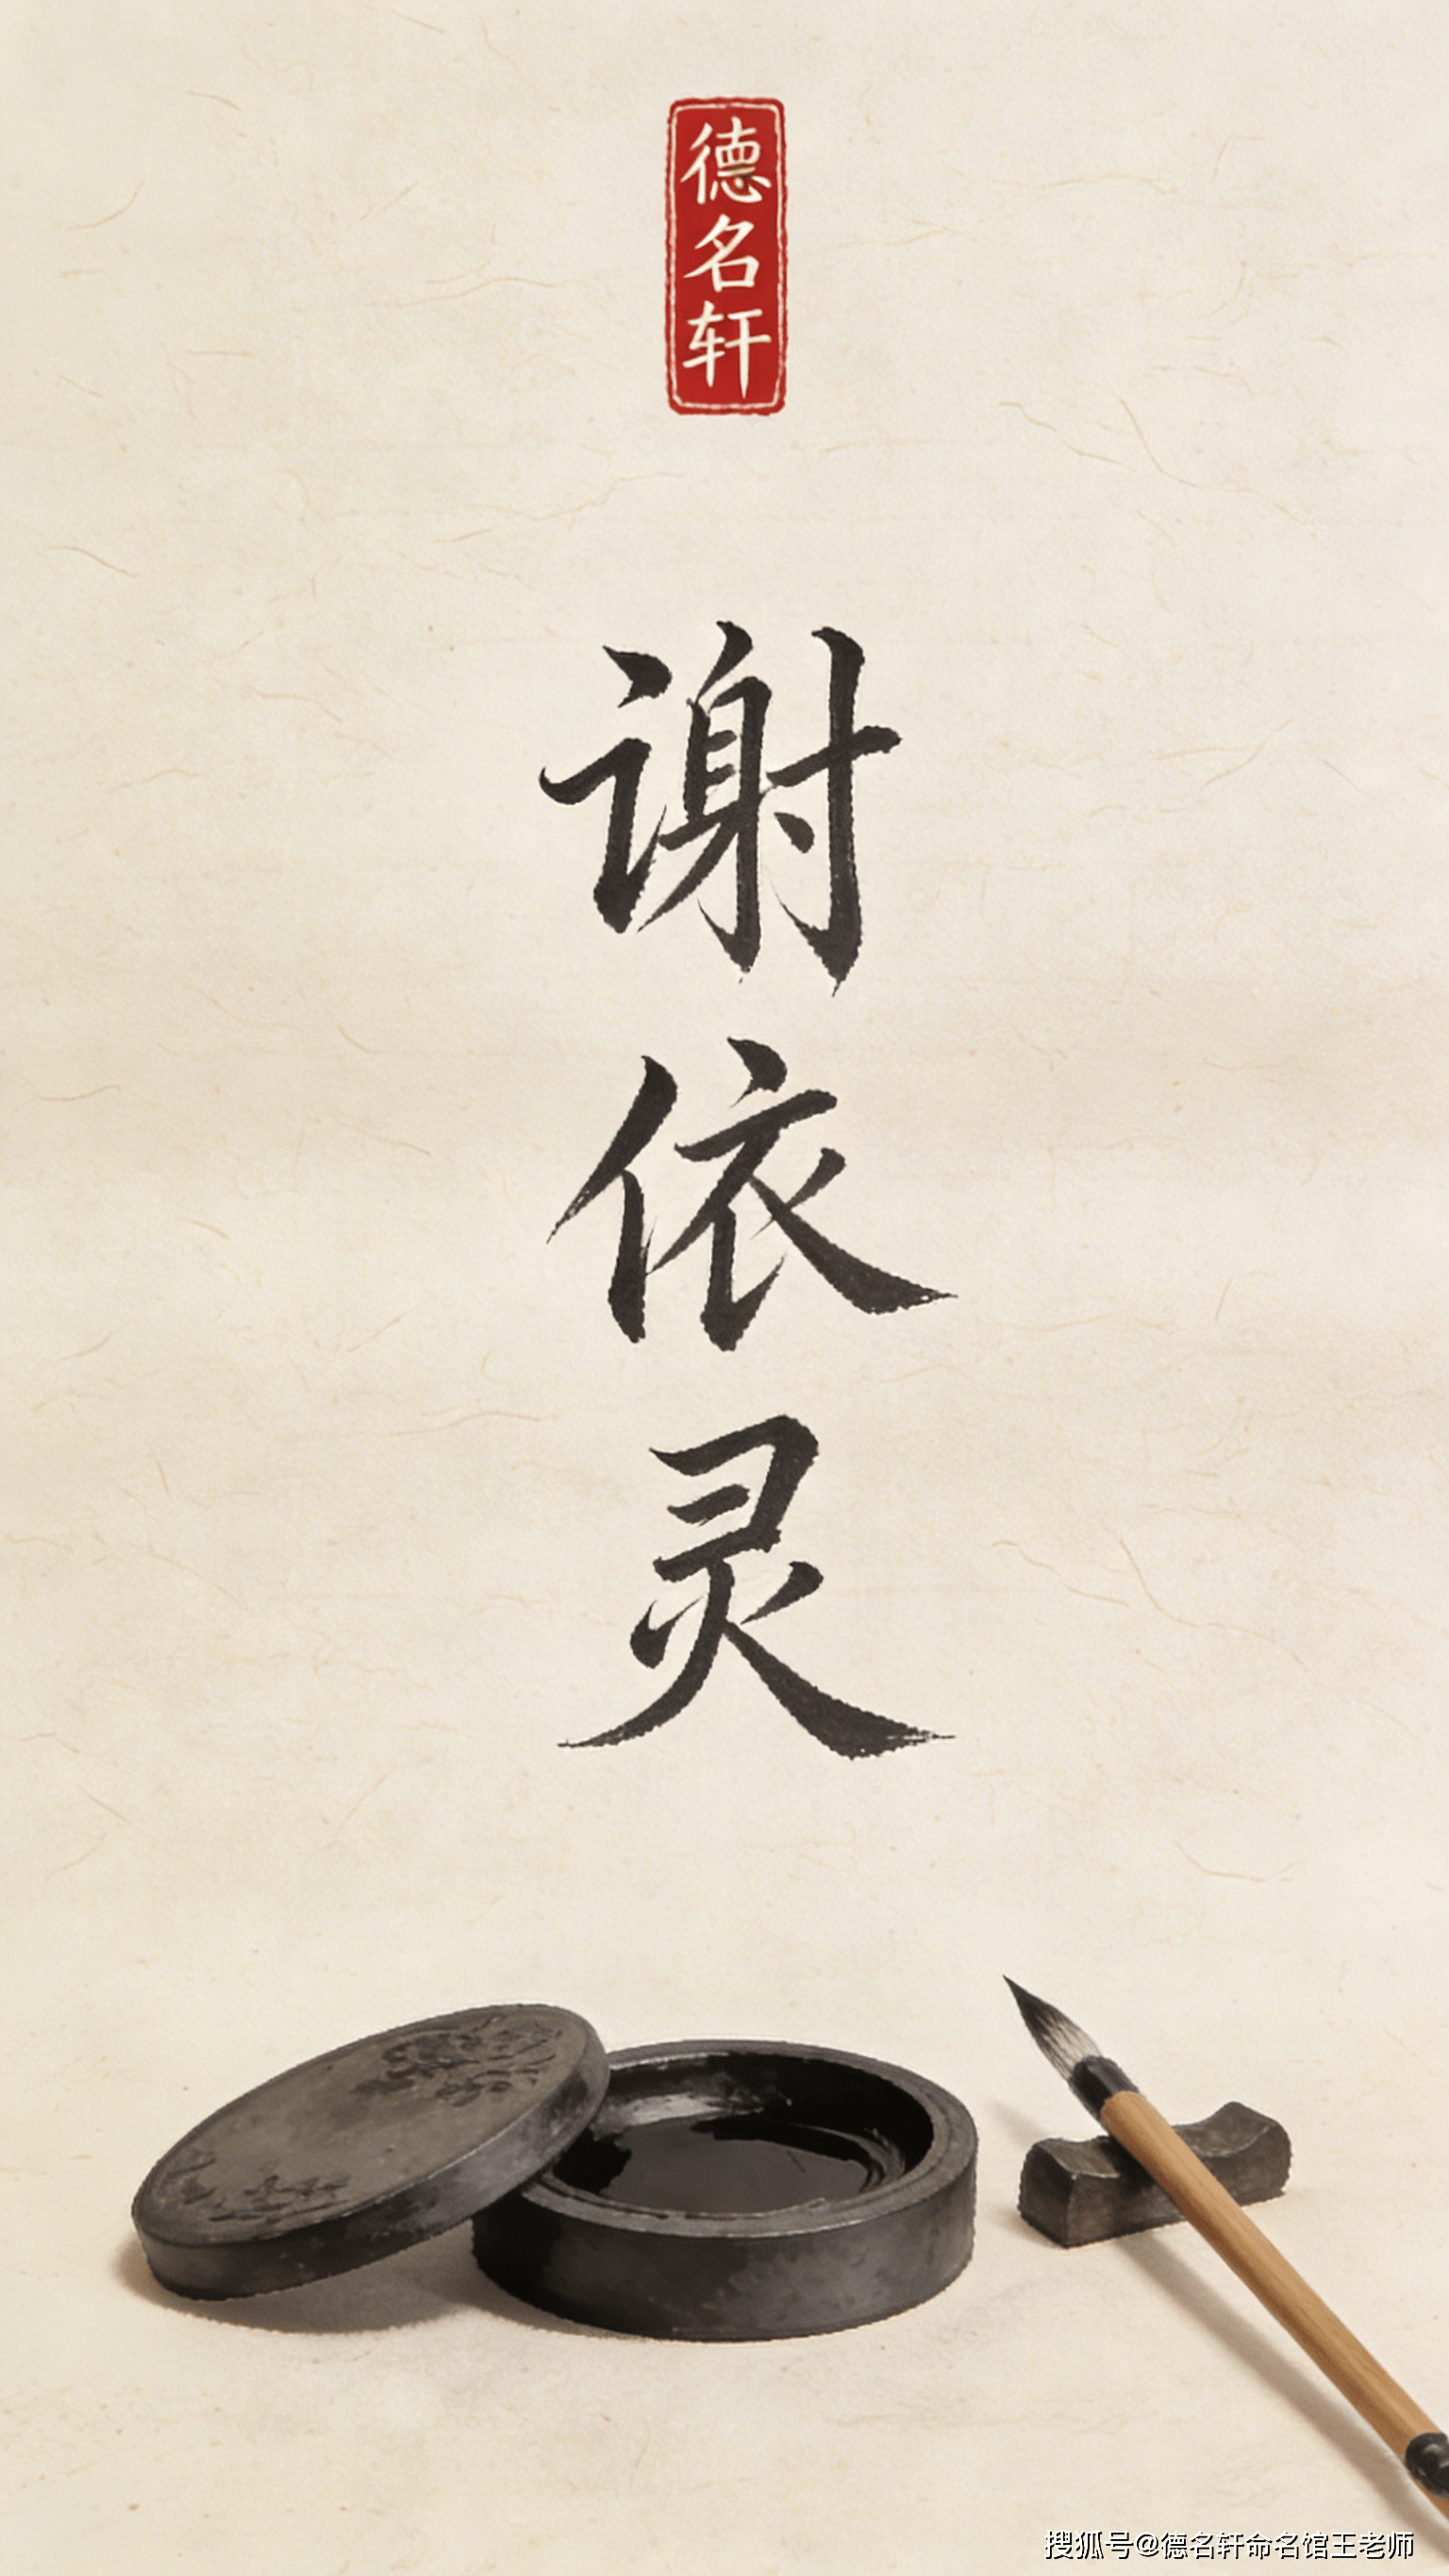 德名轩
谢依灵
搜狐号@德名轩命名馆王老师